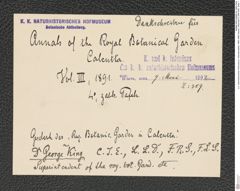 K. K. NATURHISTORISCHES HOFMUSEUM
Botanische Abtheilung.
Dankschreiben für
Annals of the Royal Botanical Garden
Calcutta
K. und k. Intendanz
des k. k. naturhistorischen Hofmuseums
Vol. III, 1891.
Wien, am 7. 1892
4°,
Garden in Calcutta
Dr George King C.I.E., L.L.D., F.R.S., F.L.S.
Superintendent of the roy. bot. Gard. etc